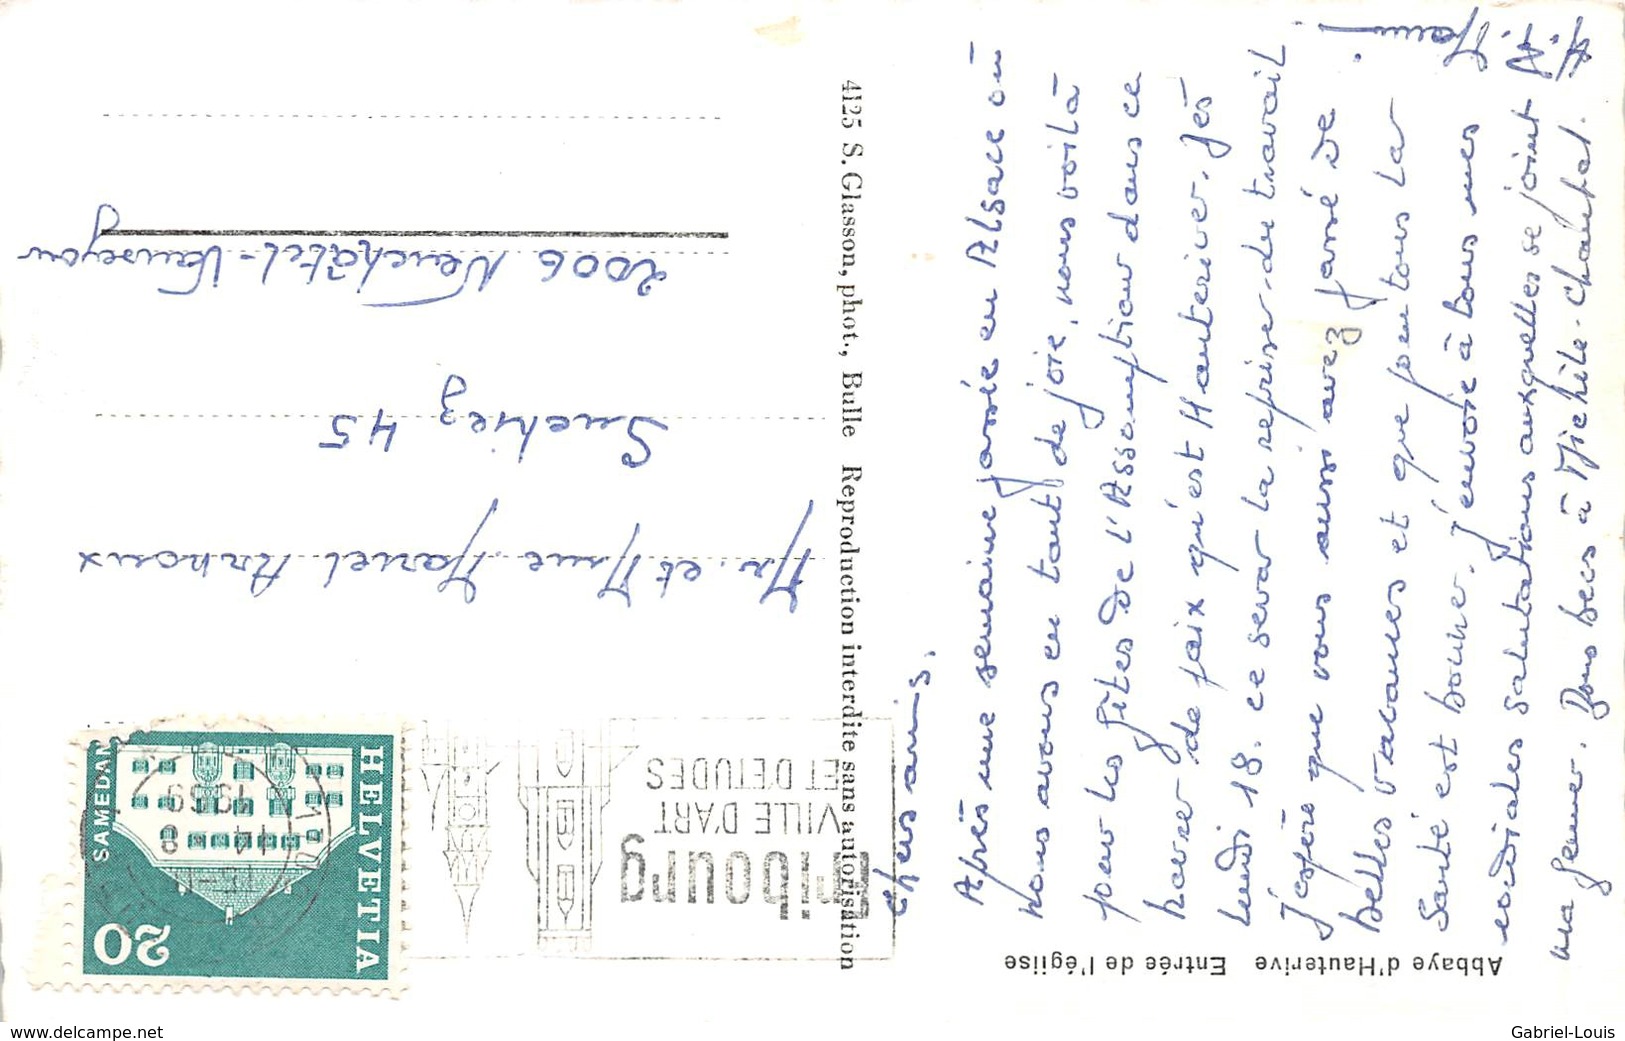 Abbaye d'Hauterive Entrée de l'église
4125 S. Glasson, phot., Bulle Reproduction interdite sans autorisation
HELVETIA
20
SAMEDAN
14 8
1969
Fribourg
VILLE D'ART
ET D'ETUDES
Mr. et Mme Marcel Arnoux
Suchiez 45
2006 Neuchâtel-Vauseyon
Chers amis.
Après une semaine passée en Alsace où
nous avons eu tant de joie, nous voilà
pour les fêtes de l'Assomption dans ce
havre de paix qu'est Hauterive. Dès
lundi 18. ce sera la reprise du travail.
J'espère que vous aussi avez passé de
belles vacances et que pour tous la
santé est bonne. J'envoie à tous mes
cordiales salutations auxquelles se joint
ma femme. Bons becs à Michèle-Chantal.